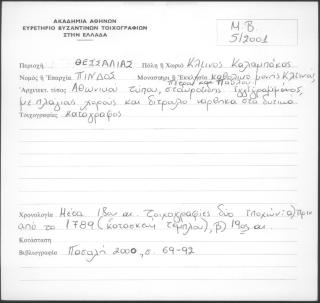 ΑΚΑΔΗΜΙΑ ΑΘΗΝΩΝ
ΕΥΡΕΤΗΡΙΟ ΒΥΖΑΝΤΙΝΩΝ ΤΟΙΧΟΓΡΑΦΙΩΝ
ΣΤΗΝ ΕΛΛΑΔΑ
Μ.Β.
5/2001
Περιοχή ΘΕΣΣΑΛΙΑΣ Πόλη ή Χωριό Κλεινός Καλαμπάκας
Νομός ή Επαρχία ΠΙΝΔΟΣ Μοναστήρι ή Εκκλησία καθολικό μονής Κλεινού,
Πέτρου και Παύλου
Αρχιτεκτ. τύπος Αθωνικού τύπου, σταυροειδής εγγεγραμμένος,
με πλάγιους χορούς και δίτρουλο νάρθηκα στα δυτικά.
Τοιχογραφίες κατάγραφος
Χρονολογία Μέσα 18ου αι. Τοιχογραφίες δύο εποχών: α) πριν
από το 1789 (κατασκευή τέμπλου), β) 19ος αι.
Κατάσταση
Βιβλιογραφία Πασαλή 2000, σ. 69-92